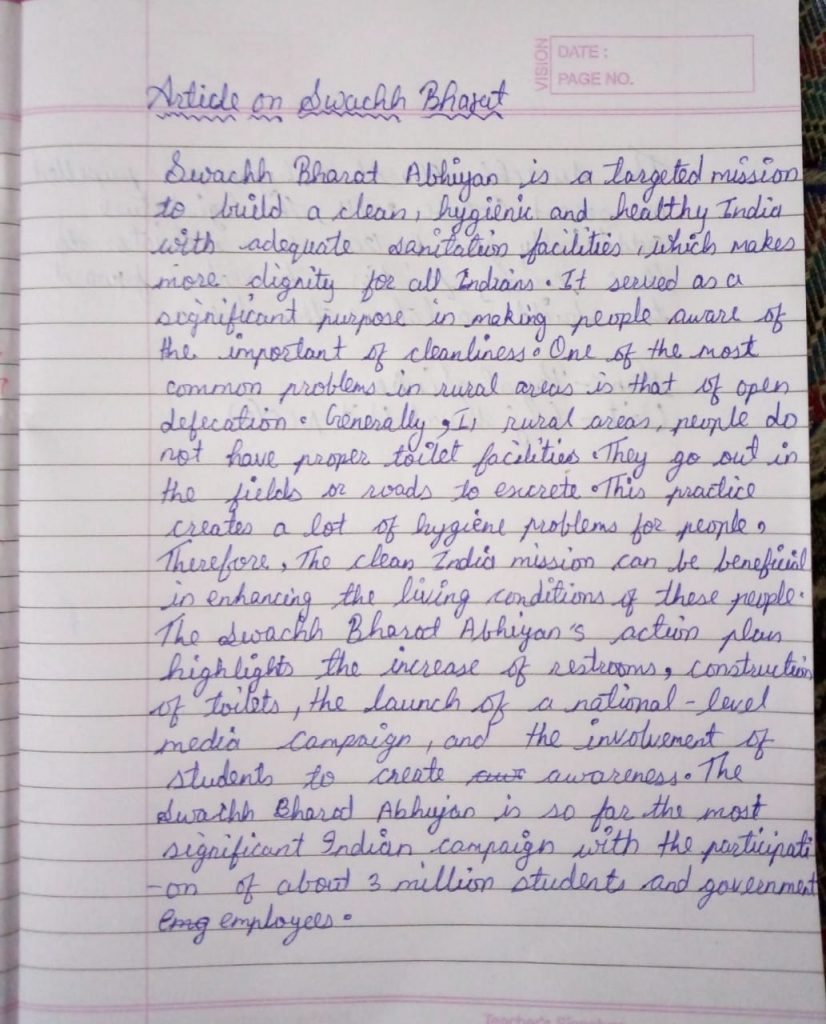 VISION
DATE :
PAGE NO.
Article on Swachh Bharat
Swachh Bharat Abhiyan is a targeted mission
to build a clean, hygienic and healthy India
with adequate sanitation facilities, which makes
more dignity for all Indians. It served as a
significant purpose in making people aware of
the important of cleanliness. One of the most
common problems in rural areas is that of open
defecation. Generally, In rural areas, people do
not have proper toilet facilities. They go out in
the fields or roads to excrete. This practice
creates a lot of hygiene problems for people,
Therefore, The clean India mission can be beneficial
in enhancing the living conditions of these people.
The Swachh Bharat Abhiyan's action plan
highlights the increase of restrooms, construction
of toilets, the launch of a national-level
media campaign, and the involvement of
students to create awareness. The
Swachh Bharat Abhiyan is so far the most
significant Indian campaign with the participati
-on of about 3 million students and government
emg employees.
Teacher's